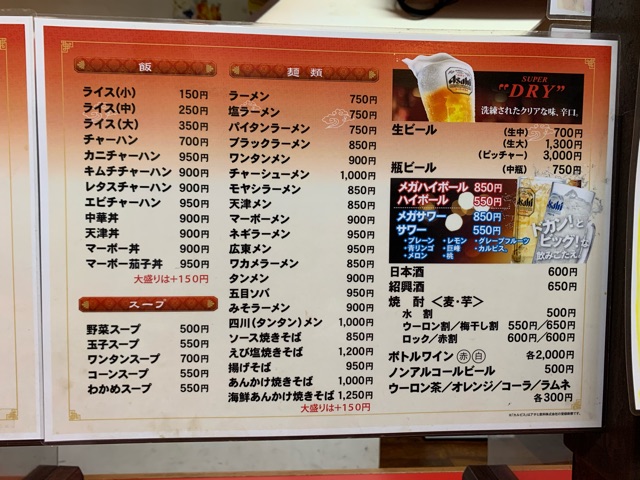 飯
ライス(小) 150円
ライス(中) 250円
ライス(大) 350円
チャーハン 700円
カニチャーハン 950円
キムチチャーハン 900円
レタスチャーハン 900円
エビチャーハン 950円
中華丼 900円
天津丼 900円
マーボー丼 900円
マーボー茄子丼 950円
大盛りは+150円
スープ
野菜スープ 500円
玉子スープ 550円
ワンタンスープ 700円
コーンスープ 550円
わかめスープ 550円
麺類
ラーメン 750円
塩ラーメン 750円
パイタンラーメン 750円
ブラックラーメン 850円
ワンタンメン 900円
チャーシューメン 1,000円
モヤシラーメン 850円
天津メン 850円
マーボーメン 900円
ネギラーメン 950円
広東メン 950円
ワカメラーメン 850円
タンメン 900円
五目ソバ 950円
みそラーメン 900円
四川(タンタン)メン 1,000円
ソース焼きそば 850円
えび塩焼きそば 1,200円
揚げそば 950円
あんかけ焼きそば 1,000円
海鮮あんかけ焼きそば 1,250円
大盛りは+150円
Asahi
SUPER
"DRY"
洗練されたクリアな味、辛口。
生ビール (生中) 700円
(生大) 1,300円
(ピッチャー) 3,000円
瓶ビール (中瓶) 750円
メガハイボール 850円
ハイボール 550円
メガサワー 850円
サワー 550円
・プレーン ・レモン ・グレープフルーツ
・青リンゴ ・巨峰 ・カルピス
・メロン ・桃
Asahi
ドカン!と
ビッグ!な
飲みごたえ!
日本酒 600円
紹興酒 650円
焼 酎 <麦・芋>
水 割 500円
ウーロン割/梅干し割 550円/650円
ロック/赤割 600円/600円
ボトルワイン 赤 白 各2,000円
ノンアルコールビール 500円
ウーロン茶/オレンジ/コーラ/ラムネ
各300円